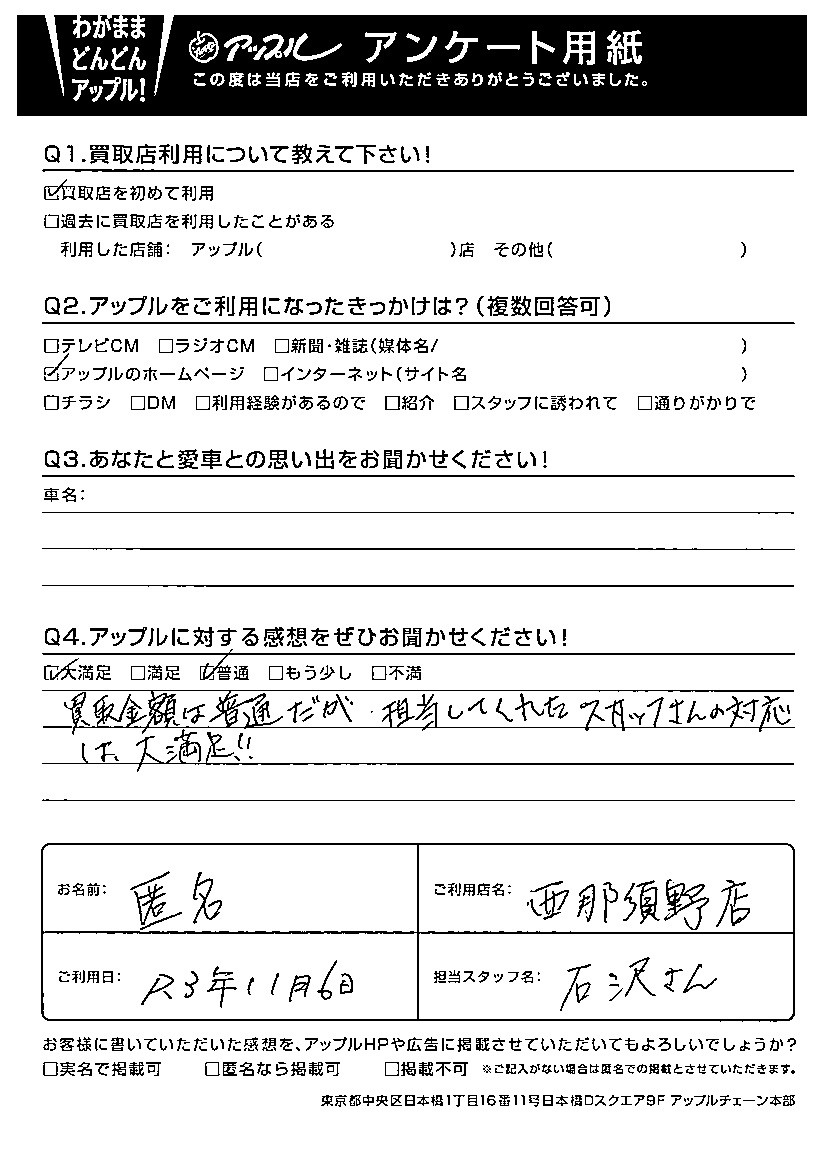 わがまま
どんどん
アップル!
アップル アンケート用紙
この度は当店をご利用いただきありがとうございました。
Q1.買取店利用について教えて下さい!
☑買取店を初めて利用
□過去に買取店を利用したことがある
利用した店舗: アップル( )店 その他( )
Q2.アップルをご利用になったきっかけは?(複数回答可)
□テレビCM □ラジオCM □新聞・雑誌(媒体名/ )
☑アップルのホームページ □インターネット(サイト名 )
□チラシ □DM □利用経験があるので □紹介 □スタッフに誘われて □通りがかりで
Q3.あなたと愛車との思い出をお聞かせください!
車名:
Q4.アップルに対する感想をぜひお聞かせください!
☑大満足 □満足 ☑普通 □もう少し □不満
買取金額は普通だが、担当してくれたスタッフさんの対応
は、大満足!!
お名前: 匿名
ご利用店名: 西那須野店
ご利用日: R3年11月6日
担当スタッフ名: 石沢さん
お客様に書いていただいた感想を、アップルHPや広告に掲載させていただいてもよろしいでしょうか?
□実名で掲載可 □匿名なら掲載可 □掲載不可 ※ご記入がない場合は匿名での掲載とさせていただきます。
東京都中央区日本橋1丁目16番11号日本橋Dスクエア9F アップルチェーン本部